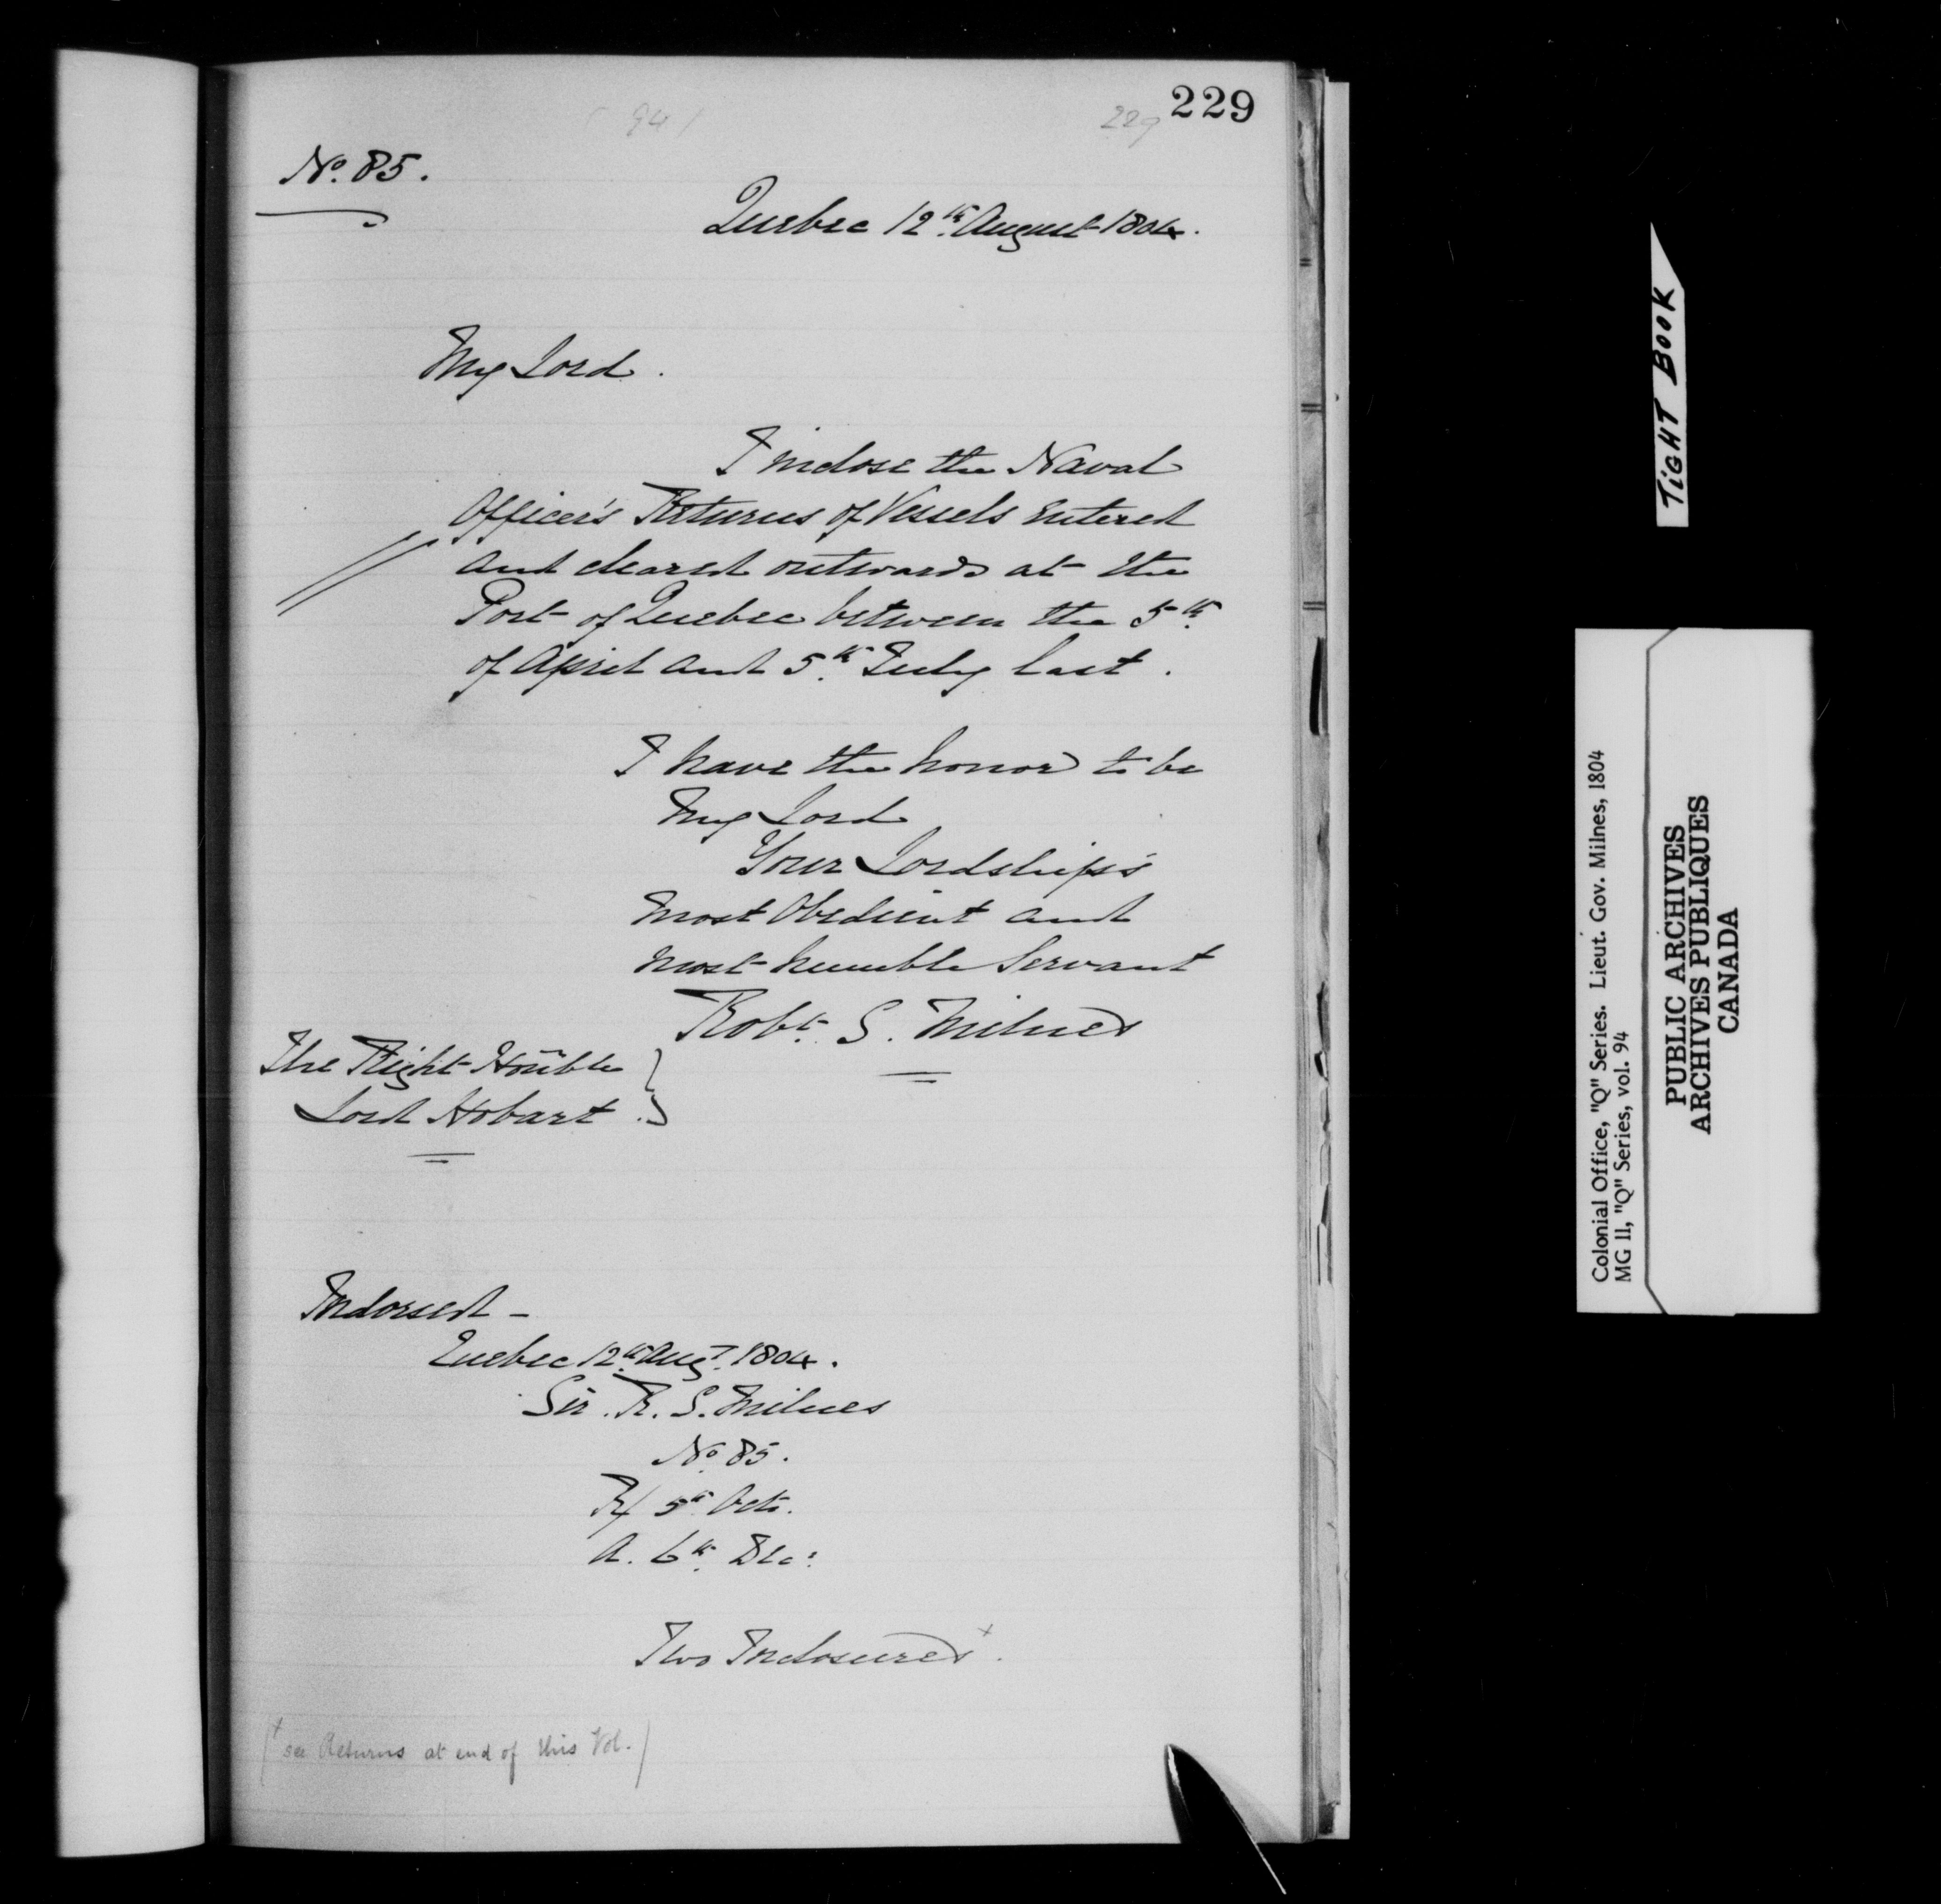 229
94
229
No. 85.
Quebec 12th August 1804.
My Lord.
I inclose the Naval
Officer's Returns of Vessels entered
and cleared outwards at the
Port of Quebec between the 5th
of April and 5th July last.
I have the honor to be
My Lord
Your Lordship's
most obedient and
most humble Servant
Robt. S. Milnes
The Right Honble
Lord Hobart.
Indorsed -
Quebec 12th Augt. 1804.
Sir. R. S. Milnes
No. 85.
R/ 5th Octr.
A. 6th Decr
Two Inclosures +.
( + see Returns at end of this Vol. )
TIGHT BOOK
Colonial Office, "Q" Series. Lieut. Gov. Milnes, 1804
MG 11, "Q" Series, vol. 94
PUBLIC ARCHIVES
ARCHIVES PUBLIQUES
CANADA